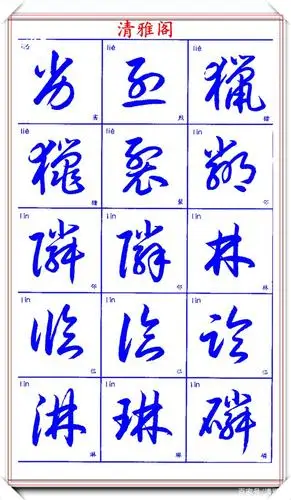 清雅阁
liè liè liè
劣 烈 獵
liè liè lín
獵 裂 鄰
lín lín lín
隣 隣 林
lín lín lín
临 临 临
lín lín lín
淋 琳 磷